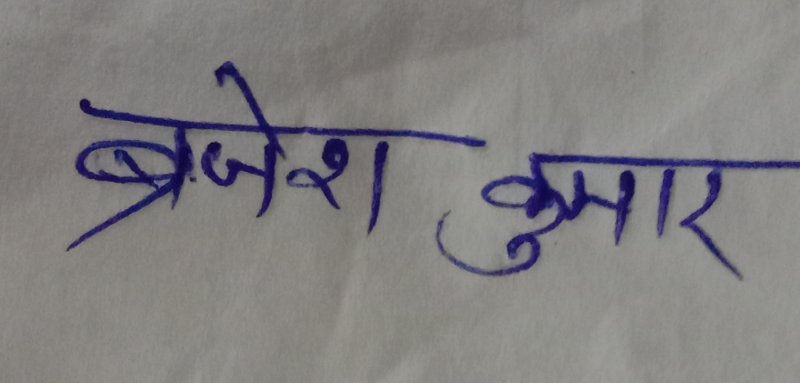 ब्रजेश कुमार